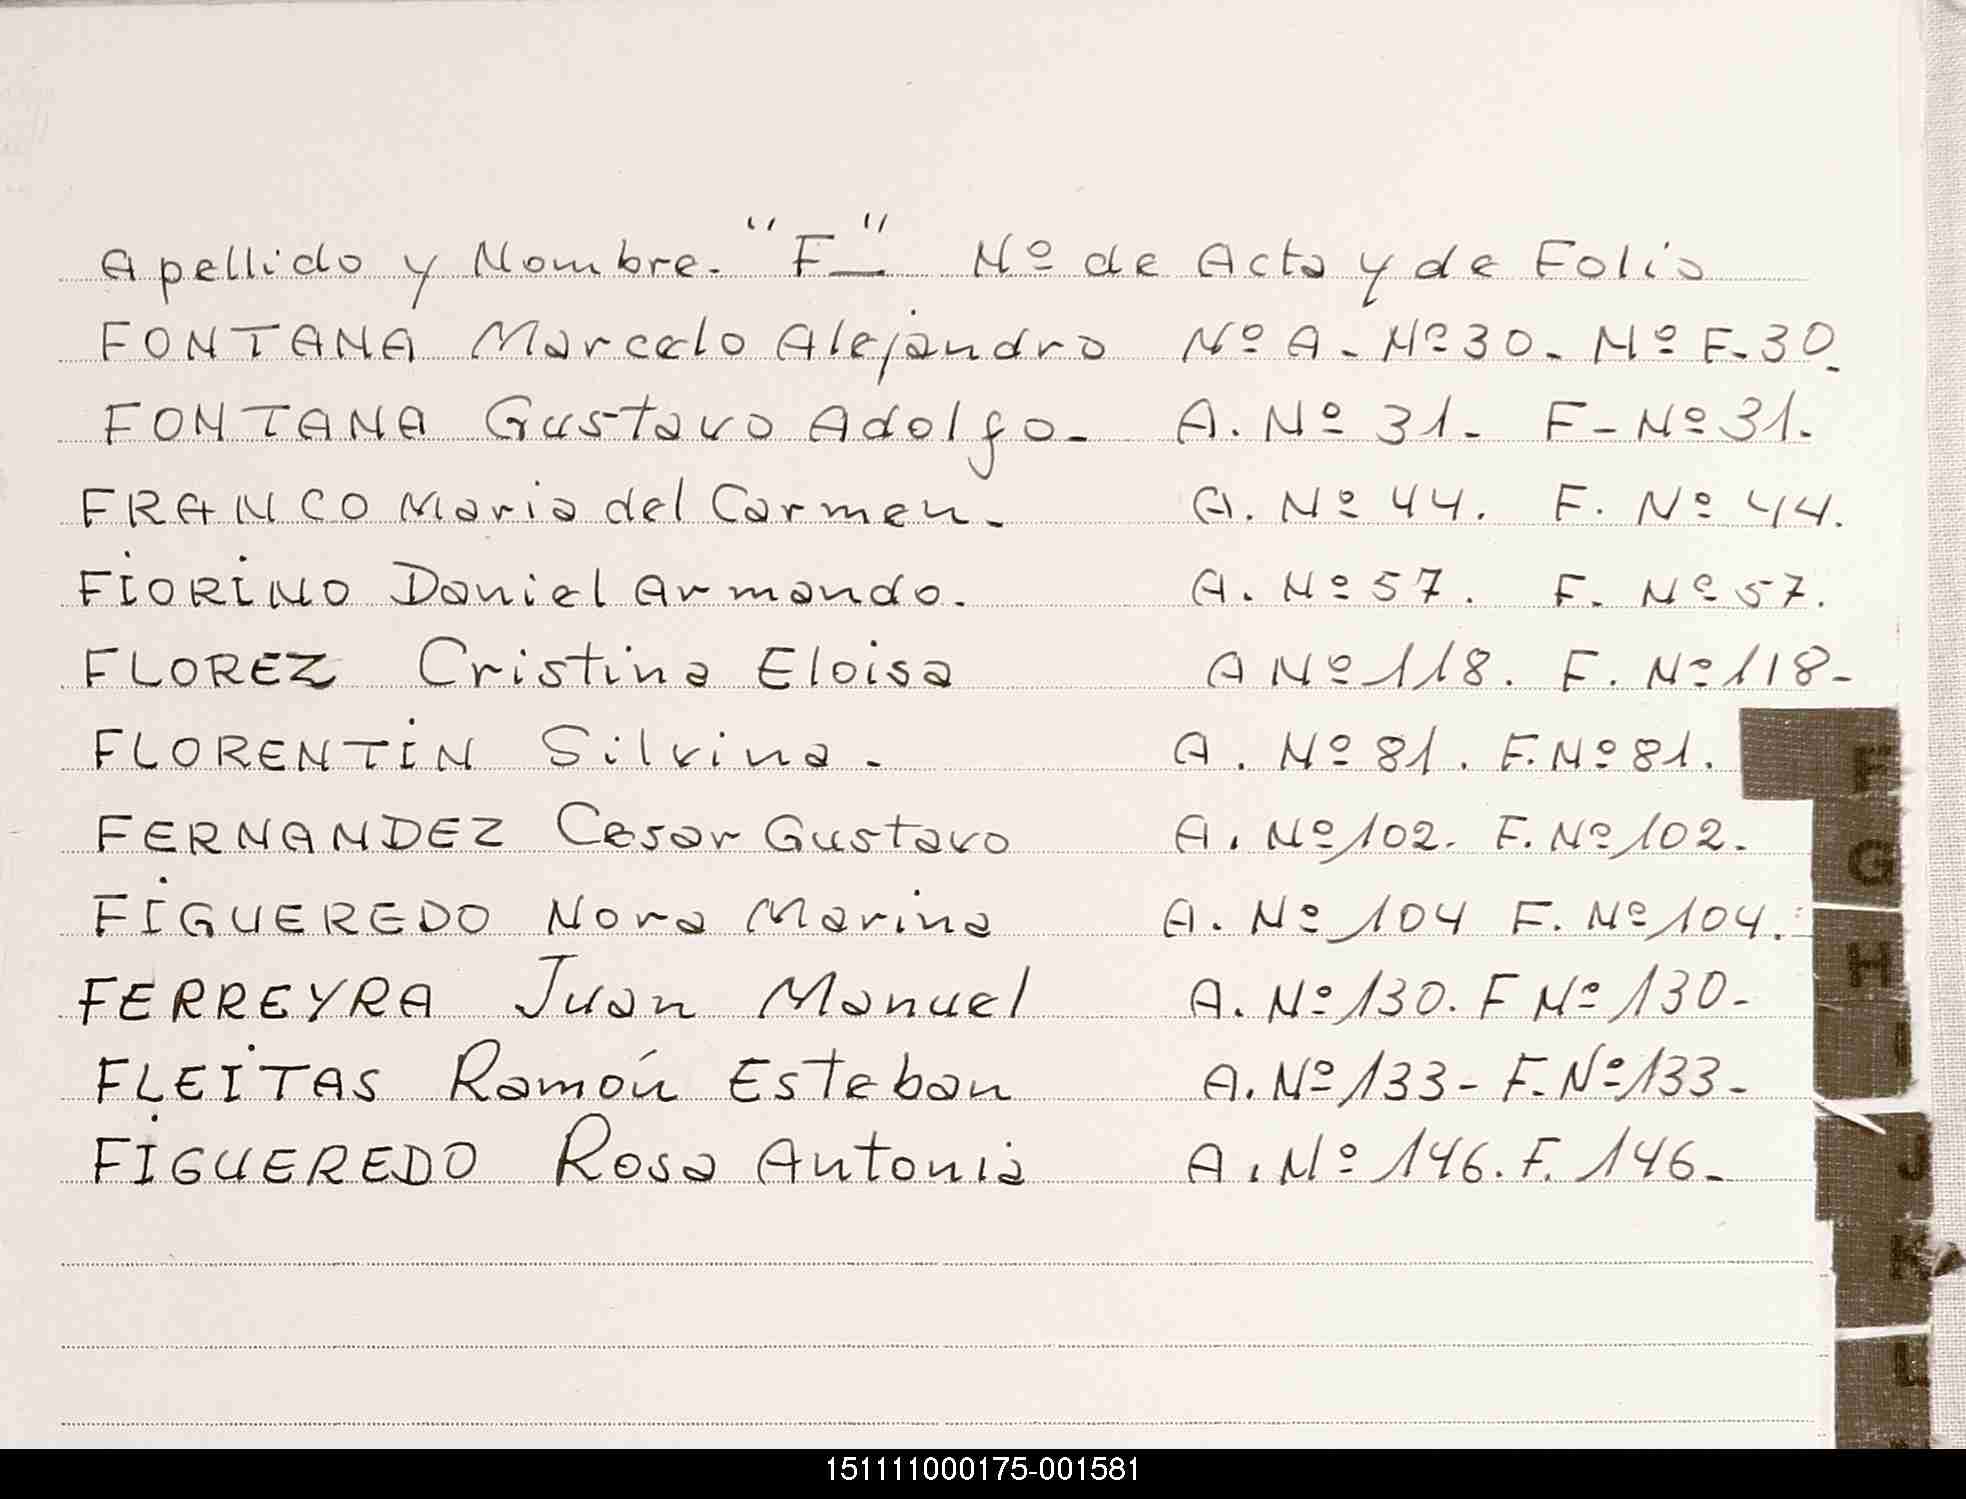 Apellido y Nombre. "F" Nº de Acta y de Folio
FONTANA Marcelo Alejandro Nº A. Nº 30. Nº F. 30.
FONTANA Gustavo Adolfo - A. Nº 31. F - Nº 31.
FRANCO Maria del Carmen. A. Nº 44. F. Nº 44.
FIORINO Daniel Armando. A. Nº 57. F. Nº 57.
FLOREZ Cristina Eloisa A Nº 118. F. Nº 118 -
FLORENTIN Silvina. A. Nº 81. F. Nº 81.
FERNANDEZ Cesar Gustavo A. Nº 102. F. Nº 102.
FIGUEREDO Nora Marina A. Nº 104 F. Nº 104.
FERREYRA Juan Manuel A. Nº 130. F Nº 130 -
FLEITAS Ramón Esteban A. Nº 133 - F. Nº 133 -
FIGUEREDO Rosa Antonia A. Nº 146. F. 146 -
F
G
H
I
J
K
L
151111000175-001581